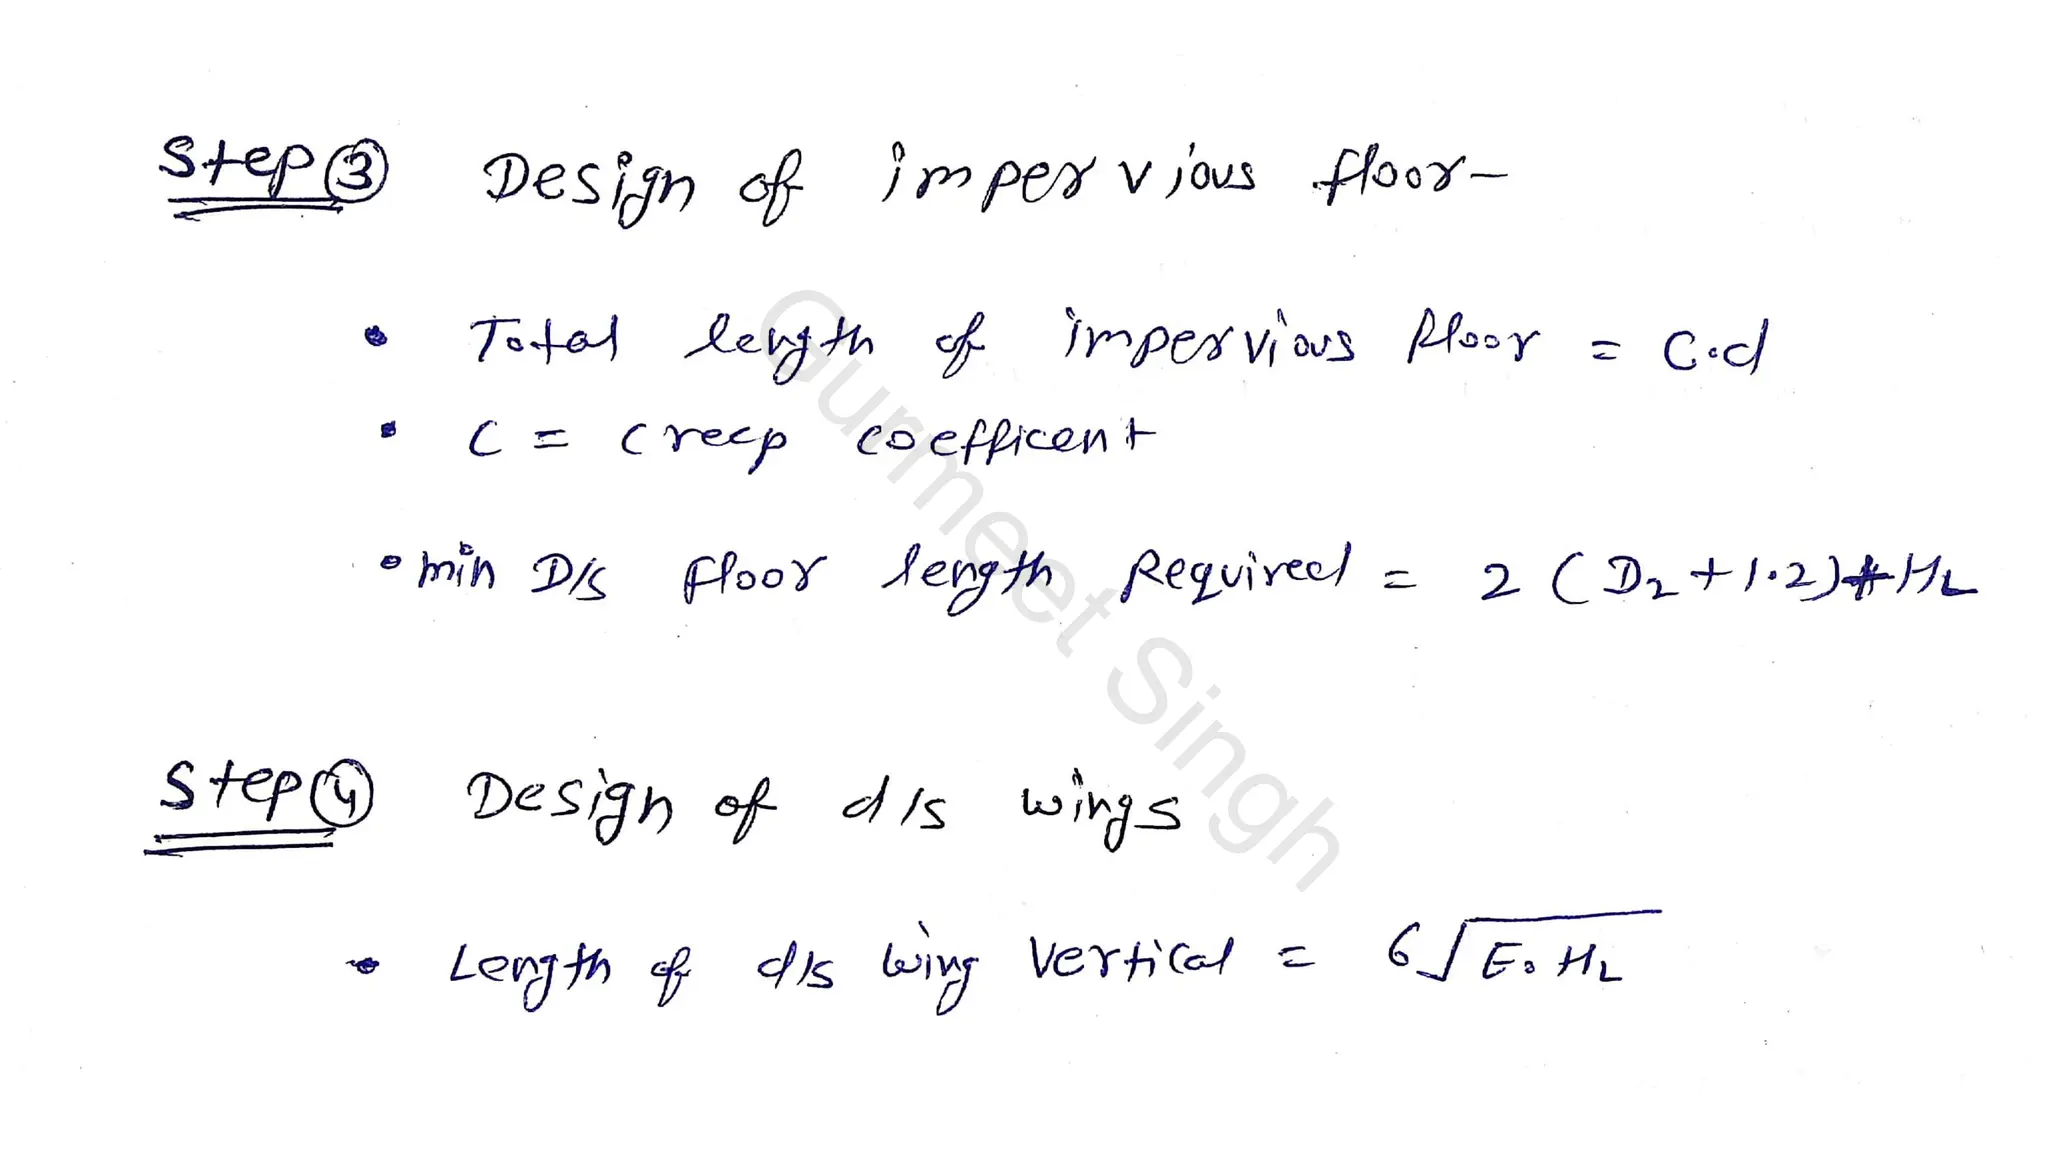 Step ③ Design of impervious floor-
• Total length of impervious floor = C.d
• C = Creep coefficent
• min D/s floor length Required = 2 (D₂ + 1.2) + H_L
Step ④ Design of d/s wings
• Length of d/s wing Vertical = 6√E. H_L
Gurmeet Singh